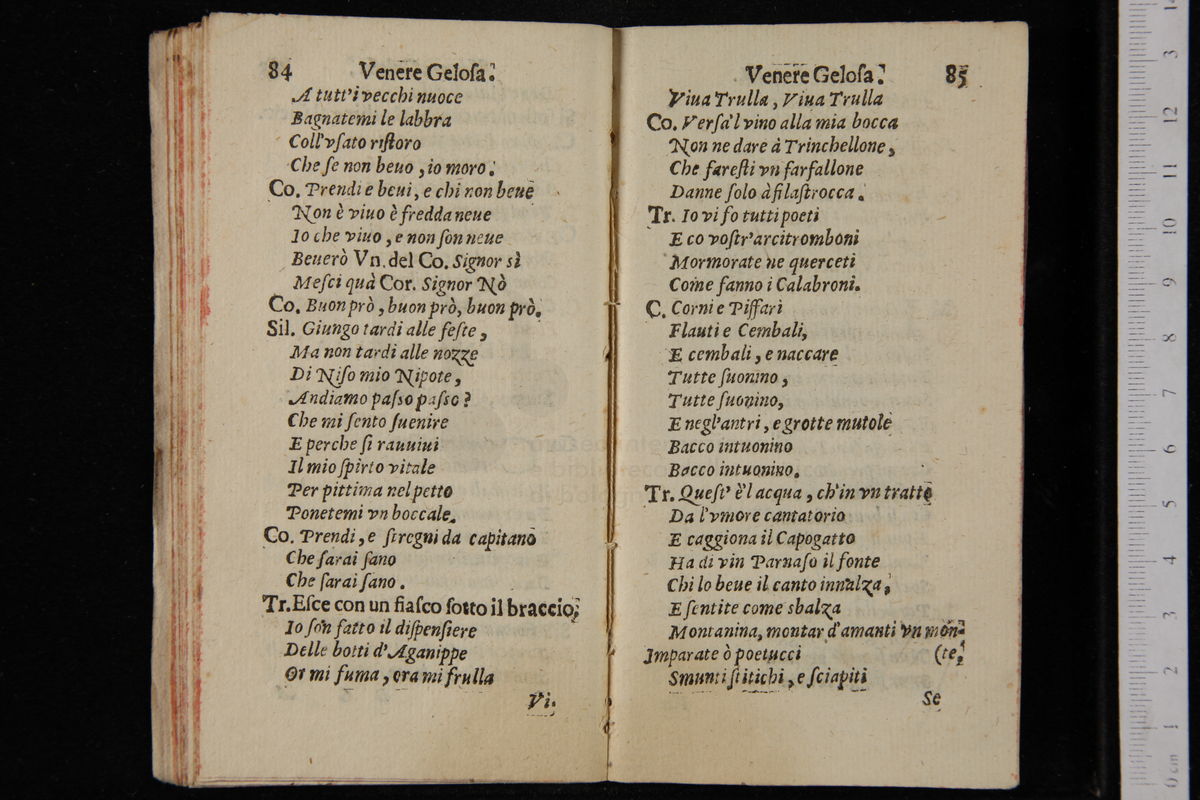 84 Venere Geloſa.
A tutt'i vecchi nuoce
Bagnatemi le labbra
Coll'vſato riſtoro
Che ſe non beuo, io moro.
Co. Prendi e beui, e chi non beue
Non è viuo è fredda neue
Io che viuo, e non ſon neue
Beuerò Vn. del Co. Signor sì
Meſci quà Cor. Signor Nò
Co. Buon prò, buon prò, buon prò.
Sil. Giungo tardi alle feſte,
Ma non tardi alle nozze
Di Niſo mio Nipote,
Andiamo paſso paſso?
Che mi ſento ſuenire
E perche ſi rauuiui
Il mio ſpirto vitale
Per pittima nel petto
Ponetemi vn boccale.
Co. Prendi, e ſtregni da capitano
Che ſarai ſano
Che ſarai ſano.
Tr. Eſce con un fiaſco ſotto il braccio,
Io ſon fatto il diſpenſiere
Delle botti d'Aganippe
Or mi fuma, ora mi frulla
Vi.
Venere Geloſa. 85
Viua Trulla, Viua Trulla
Co. Verſa'l vino alla mia bocca
Non ne dare à Trinchellone,
Che fareſti vn farfallone
Danne ſolo à filaſtrocca.
Tr. Io vi fo tutti poeti
E co voſtr'arcitromboni
Mormorate ne querceti
Come fanno i Calabroni.
C. Corni e Piffari
Flauti e Cembali,
E cembali, e naccare
Tutte ſuonino,
Tutte ſuonino,
E negl'antri, e grotte mutole
Bacco intuonino
Bacco intuonino.
Tr. Queſt' è'l acqua, ch'in vn tratto
Da l'vmore cantatorio
E caggiona il Capogatto
Ha di vin Parnaſo il fonte
Chi lo beue il canto innalza,
E ſentite come sbalza
Montanina, montar d'amanti vn mon-
Imparate ò poetucci (te,
Smunti ſtitichi, e ſciapiti
Se